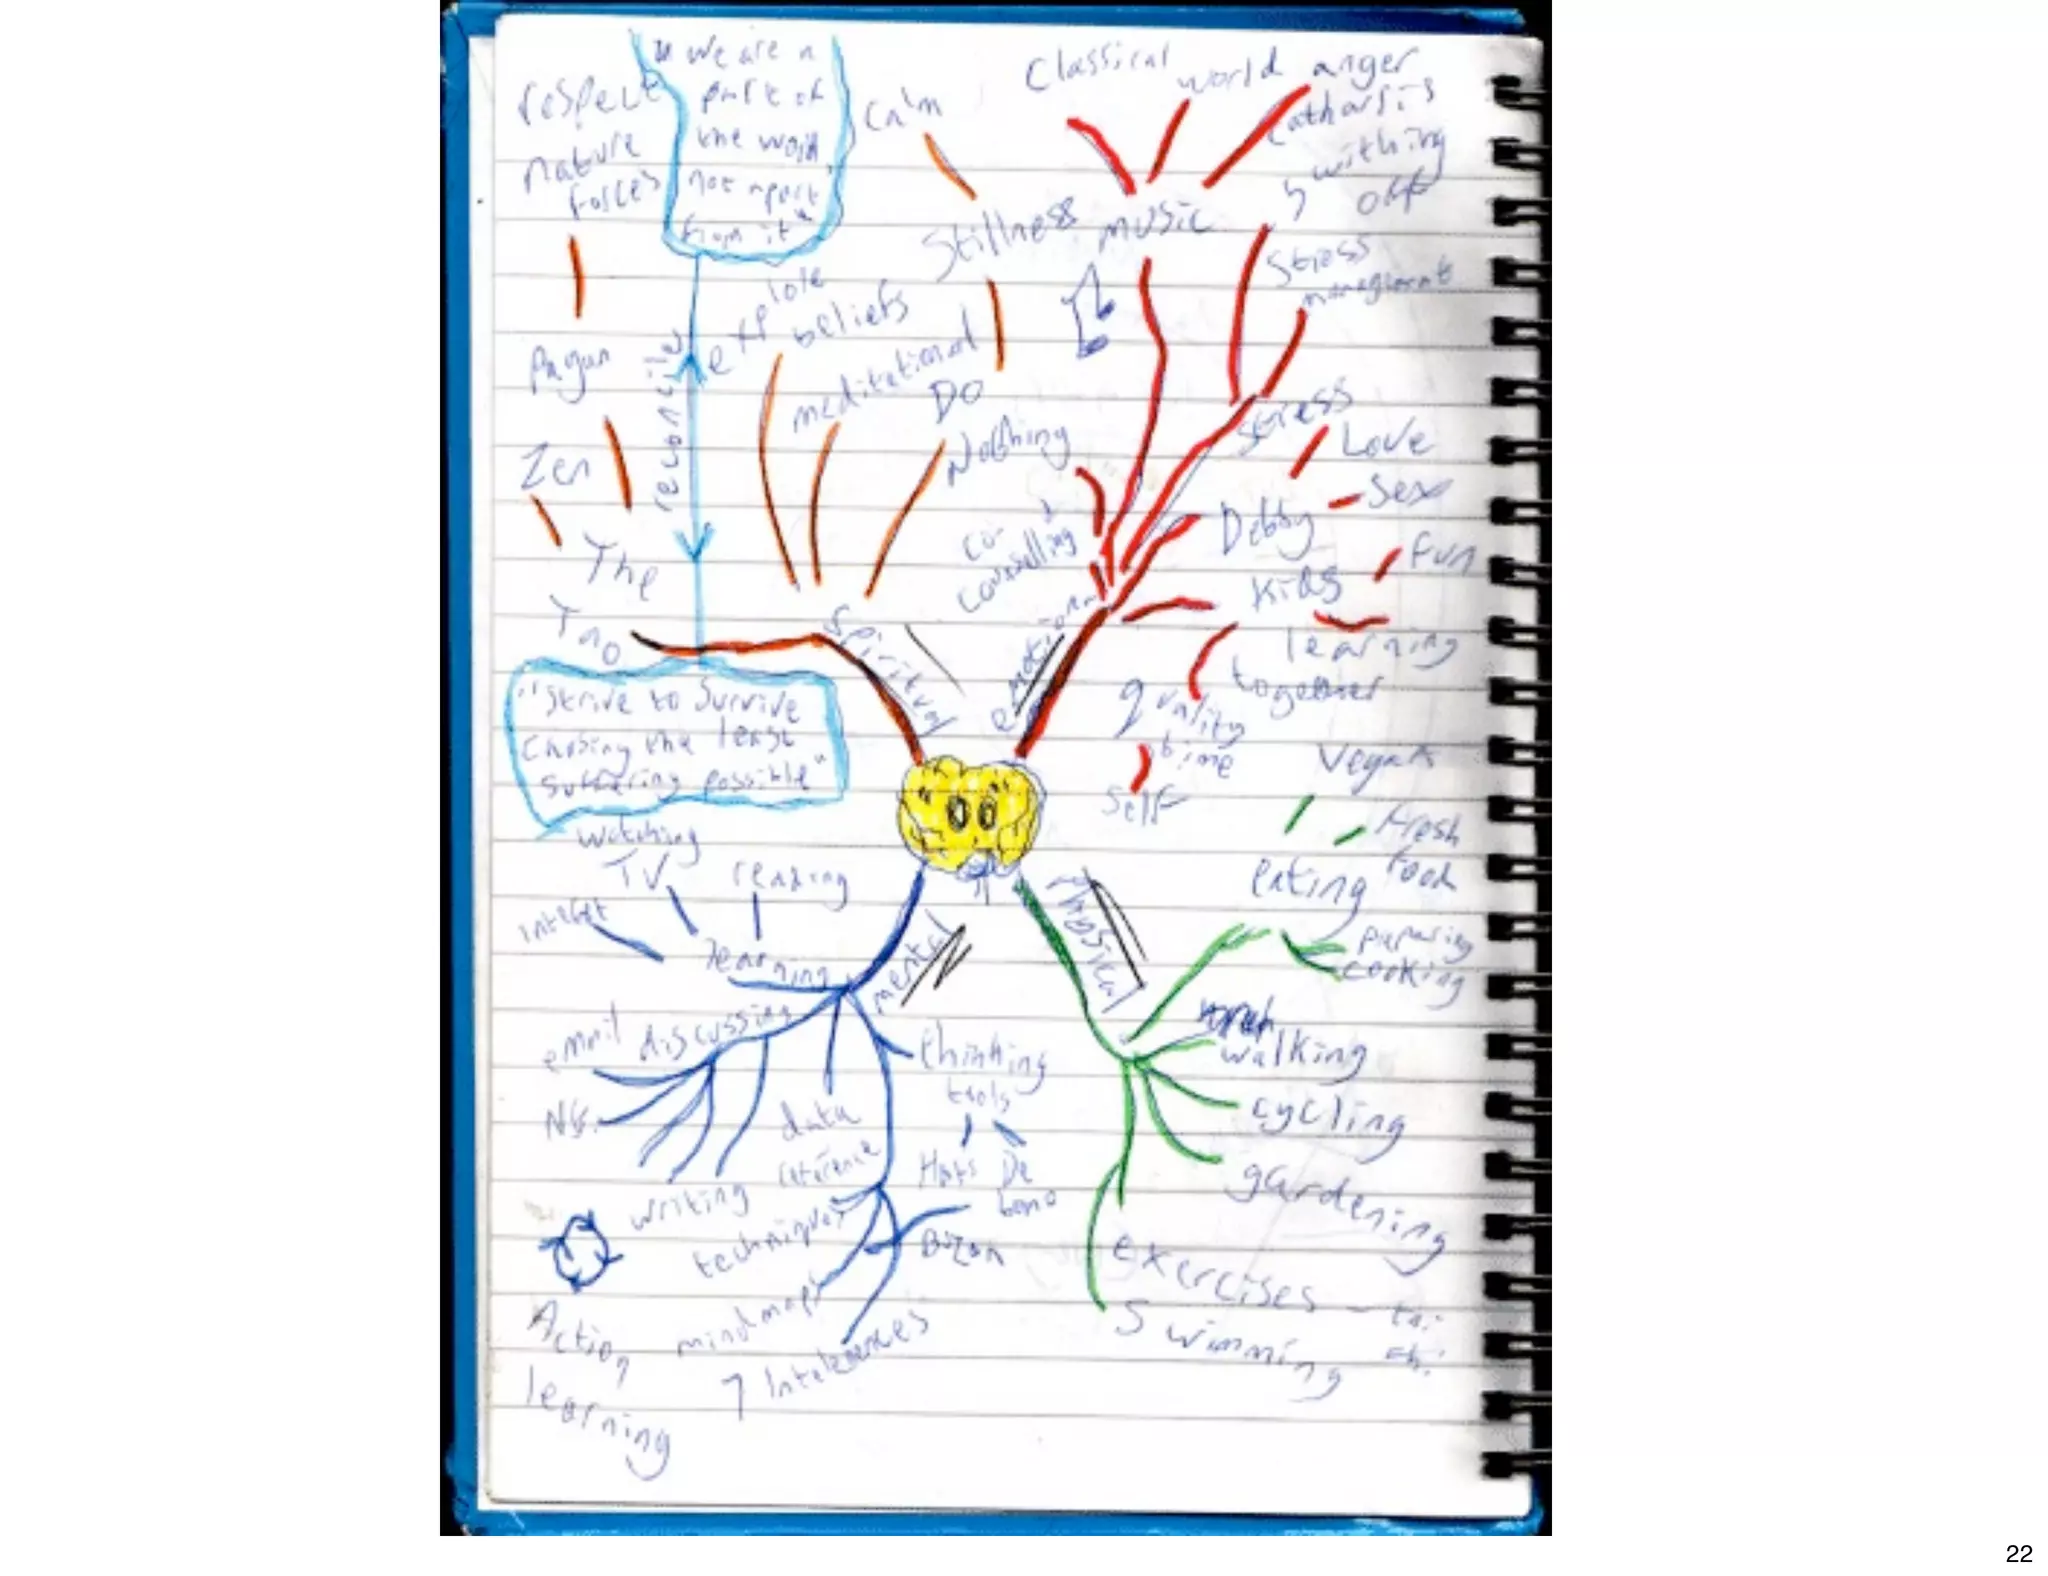 "we are a
part of
the world
not apart
from it"
respect
nature
forces
Pagan
Zen
The
Tao
reconcile
"strive to survive
chosing the least
suffering possible"
calm
Stillness
explore
beliefs
meditational
DO
Nothing
Spiritual
Classical
world
anger
catharsis
music
stress
managment
stress
Love
Sex
Debby
Fun
Kids
learning
together
quality
time
self
co-
counselling
emotional
Vegan
fresh
food
eating
preparing
cooking
Physical
walking
cycling
gardening
exercises - tai
chi
Swimming
watching
TV
reading
learning
mental
email
discussing
thinking
tools
Hats
De
bono
NG.
data
reference
writing
techniques
Buzan
mindmaps
Action
learning
22